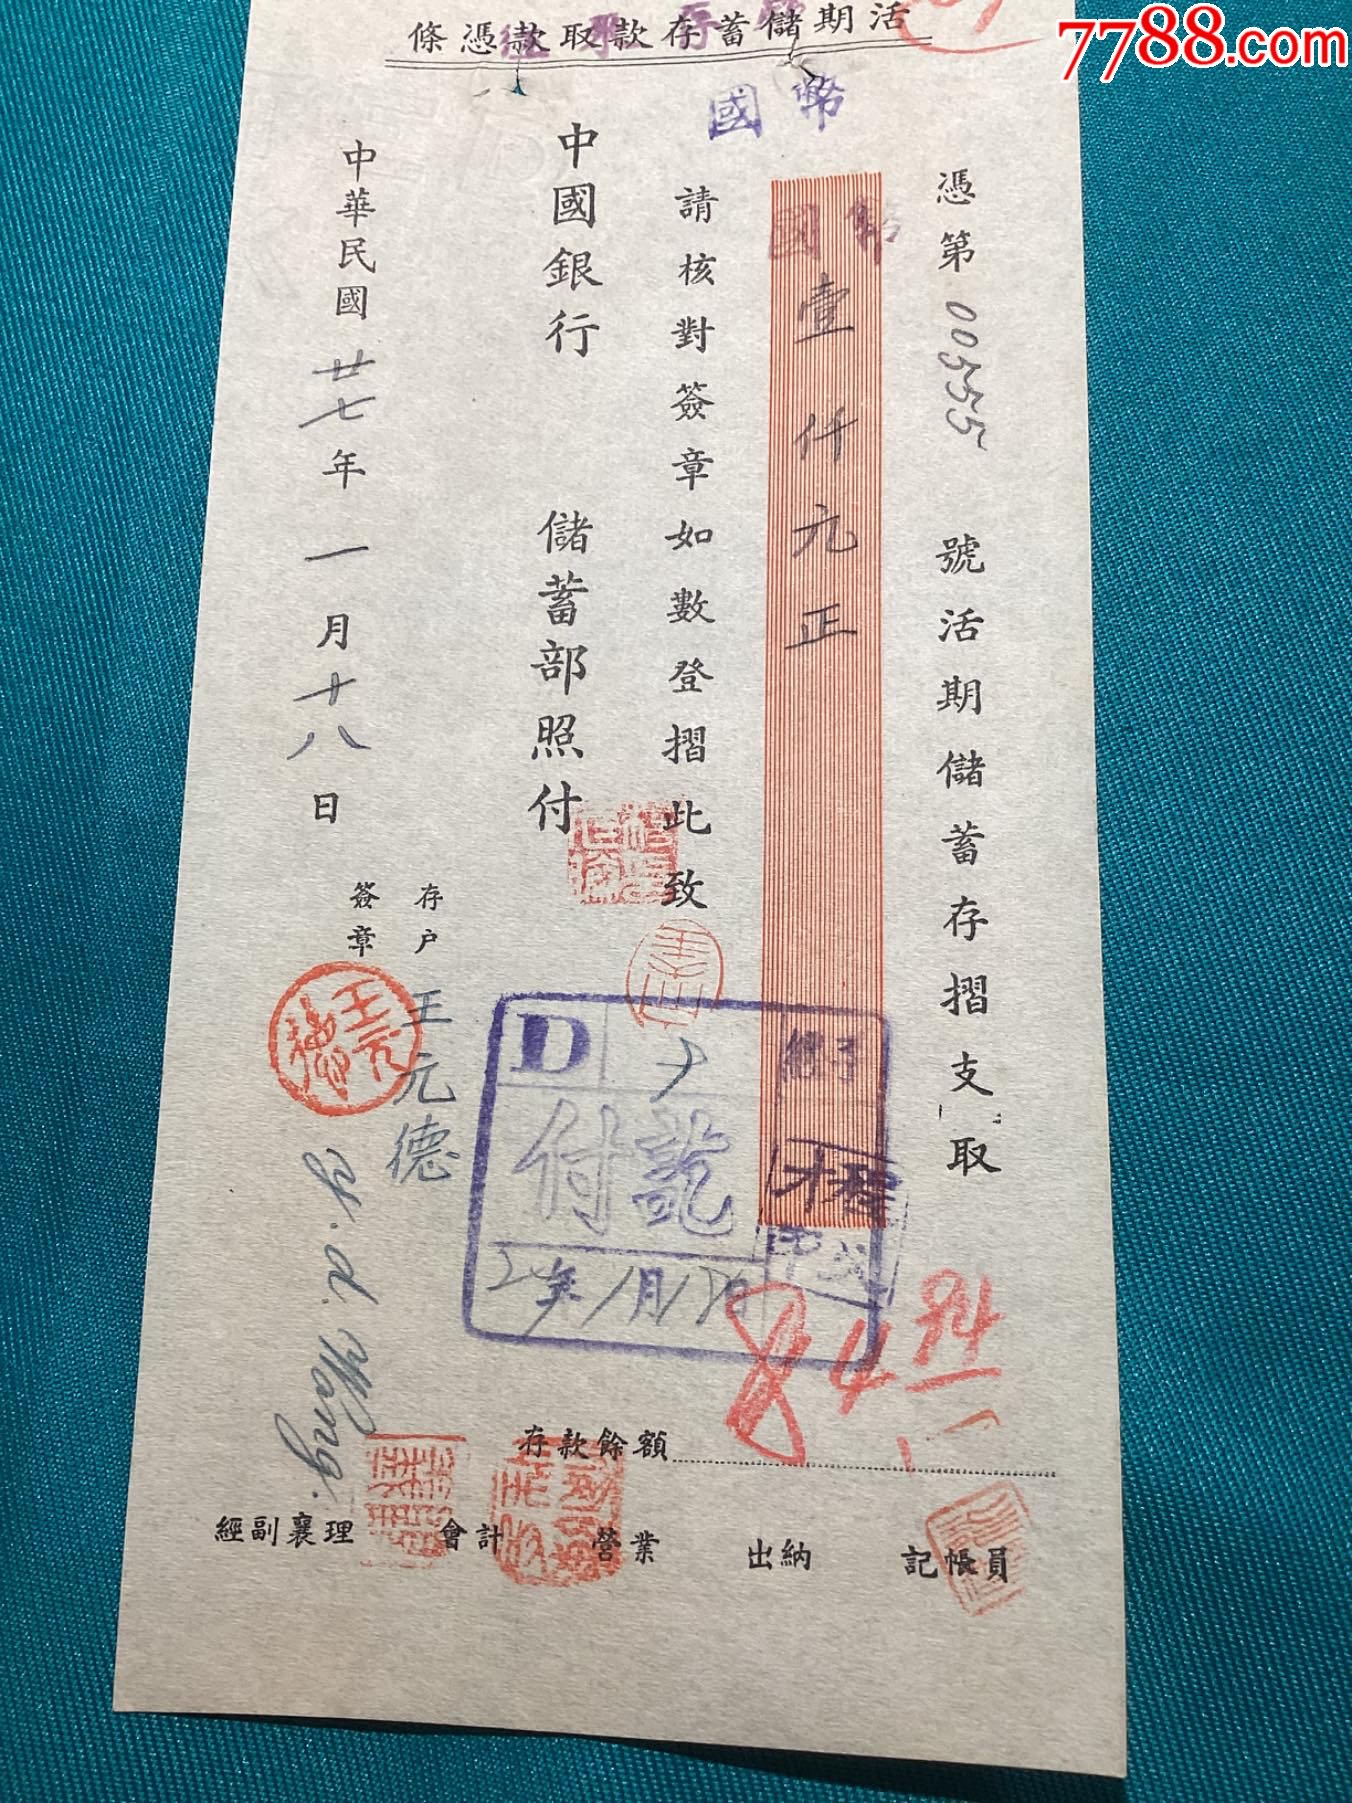 7788.com
活期儲蓄存款取款憑條
國幣
憑第00555號活期儲蓄存摺支取
國幣
壹仟元正
請核對簽章如數登摺此致
中國銀行儲蓄部照付
中華民國廿七年一月十八日
存戶
簽章
王元德
王元德
y. d. Wang.
D
付訖
年1月18日
84
存款餘額
經副襄理
會計
營業
出納
記帳員